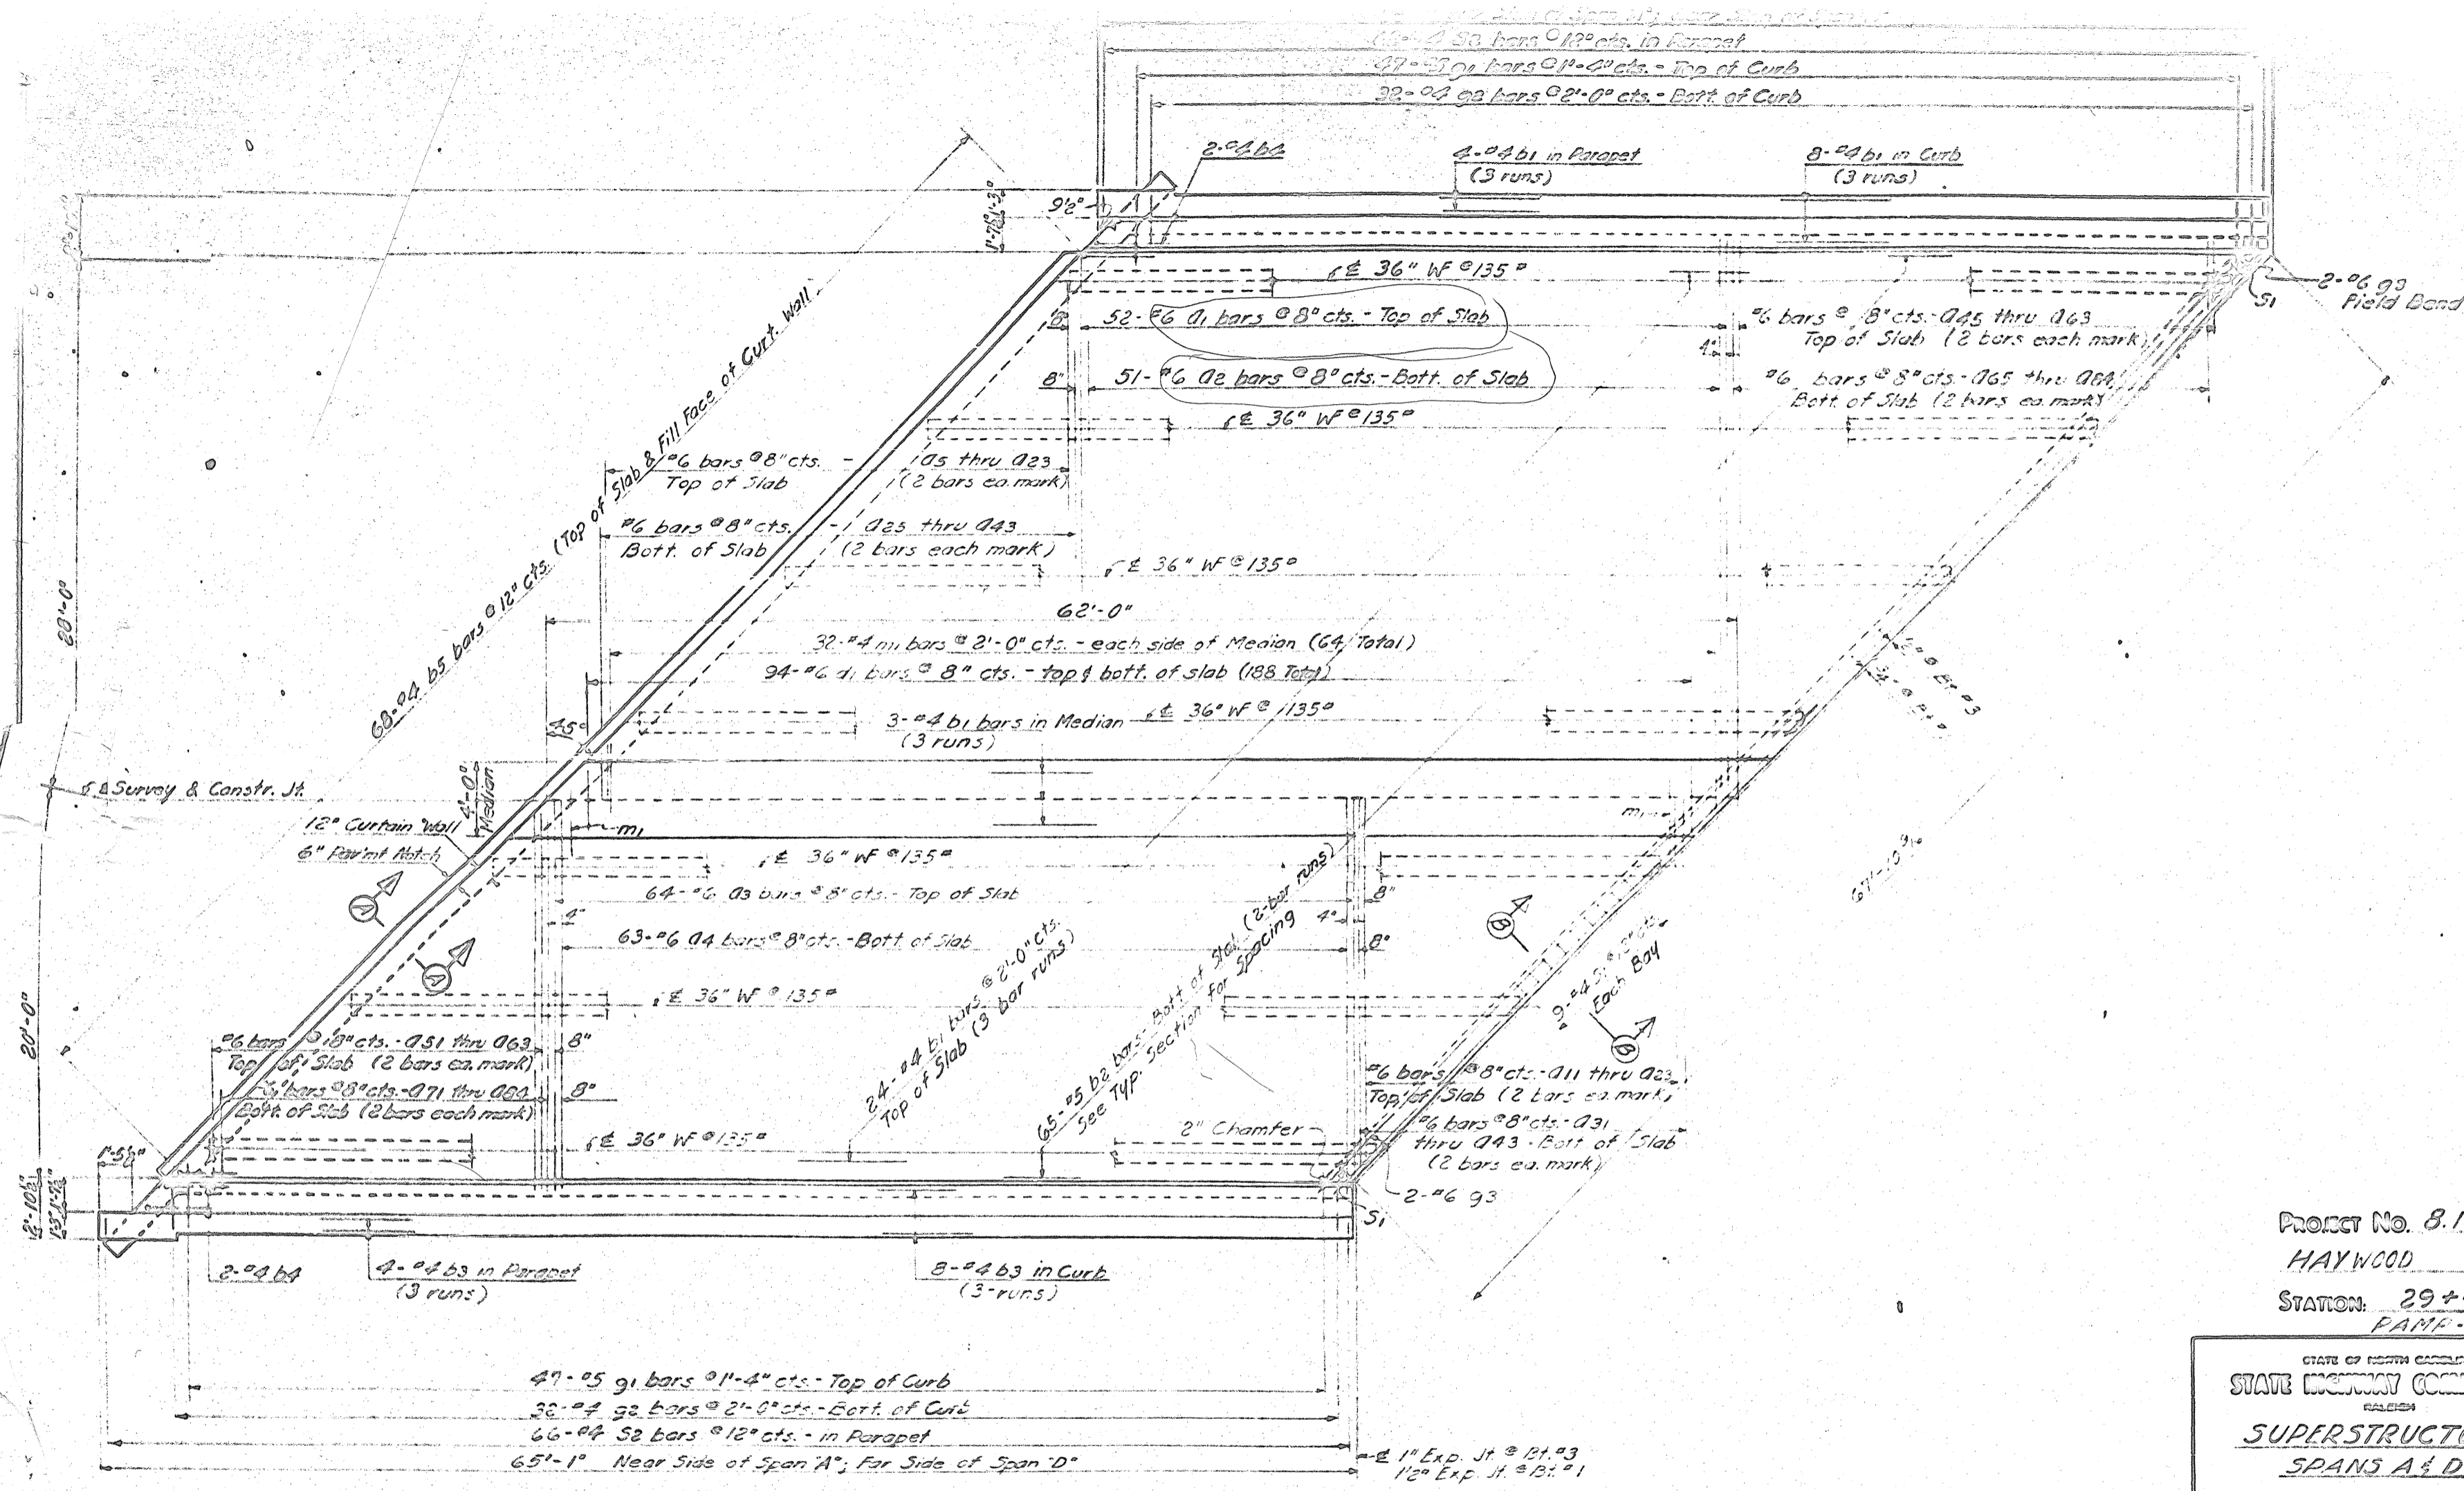 S2 bars @ 12" cts. in Parapet
47-#5 g1 bars @ 1'-4" cts. - Top of Curb
32-#4 g2 bars @ 2'-0" cts. - Bott. of Curb
2-#4 b4
4-#4 b1 in Parapet
(3 runs)
8-#4 b1 in Curb
(3 runs)
1'-7½"
1'-3"
9½"
℄ 36" WF @ 135#
2-#6 g3
Field Bend
S1
8"
52-#6 a1 bars @ 8" cts. - Top of Slab
#6 bars @ 8" cts. - a45 thru a63
Top of Slab (2 bars each mark)
4"
8"
51-#6 a2 bars @ 8" cts. - Bott. of Slab
#6 bars @ 8" cts. - a65 thru a84
Bott. of Slab (2 bars ea. mark)
℄ 36" WF @ 135#
68-#4 b5 bars @ 12" cts. (Top of Slab & Fill Face of Curt. Wall
#6 bars @ 8" cts. - a5 thru a23
Top of Slab (2 bars ea. mark)
#6 bars @ 8" cts. - a25 thru a43
Bott. of Slab (2 bars each mark)
℄ 36" WF @ 135#
28'-0"
62'-0"
32-#4 m1 bars @ 2'-0" cts. - each side of Median (64 Total)
94-#6 d1 bars @ 8" cts. - top & bott. of slab (188 Total)
45°
3-#4 b1 bars in Median
(3 runs)
℄ 36" WF @ 135#
℄ Survey & Constr. Jt.
4'-0"
Median
12" Curtain Wall
6" Pav'mt Notch
m1
m1
℄ 36" WF @ 135#
64-#6 a3 bars @ 8" cts. - Top of Slab
8"
4"
4"
63-#6 a4 bars @ 8" cts. - Bott. of Slab
8"
A
A
B
B
67'-10
℄ 36" WF @ 135#
24-#4 b1 bars @ 2'-0" cts.
Top of Slab (3 bar runs)
65-#5 b2 bars - Bott. of Slab (2-bar runs)
See Typ. Section for Spacing
9-#4 S1 @ 12" cts.
Each Bay
20'-0"
#6 bars @ 8" cts. - a51 thru a63
Top of Slab (2 bars ea. mark)
8"
#6 bars @ 8" cts. - a71 thru a84
Bott. of Slab (2 bars each mark)
8"
#6 bars @ 8" cts. - a11 thru a23
Top of Slab (2 bars ea. mark)
#6 bars @ 8" cts. - a31
thru a43 - Bott. of Slab
(2 bars ea. mark)
℄ 36" WF @ 135#
2" Chamfer
2-#6 g3
S1
2'-10½"
1'-3"
1'-7½"
2-#4 b4
4-#4 b3 in Parapet
(3 runs)
8-#4 b3 in Curb
(3-runs)
47-#5 g1 bars @ 1'-4" cts. - Top of Curb
32-#4 g2 bars @ 2'-0" cts. - Bott. of Curb
66-#4 S2 bars @ 12" cts. - in Parapet
65'-1" Near Side of Span "A"; Far Side of Span "D"
℄ 1" Exp. Jt. @ Bt. #3
1½" Exp. Jt. @ Bt. #1
PROJECT NO. 8.1
HAYWOOD
STATION: 29+
STATE OF NORTH
STATE HIGHWAY
RALEIGH
SPANS A & D